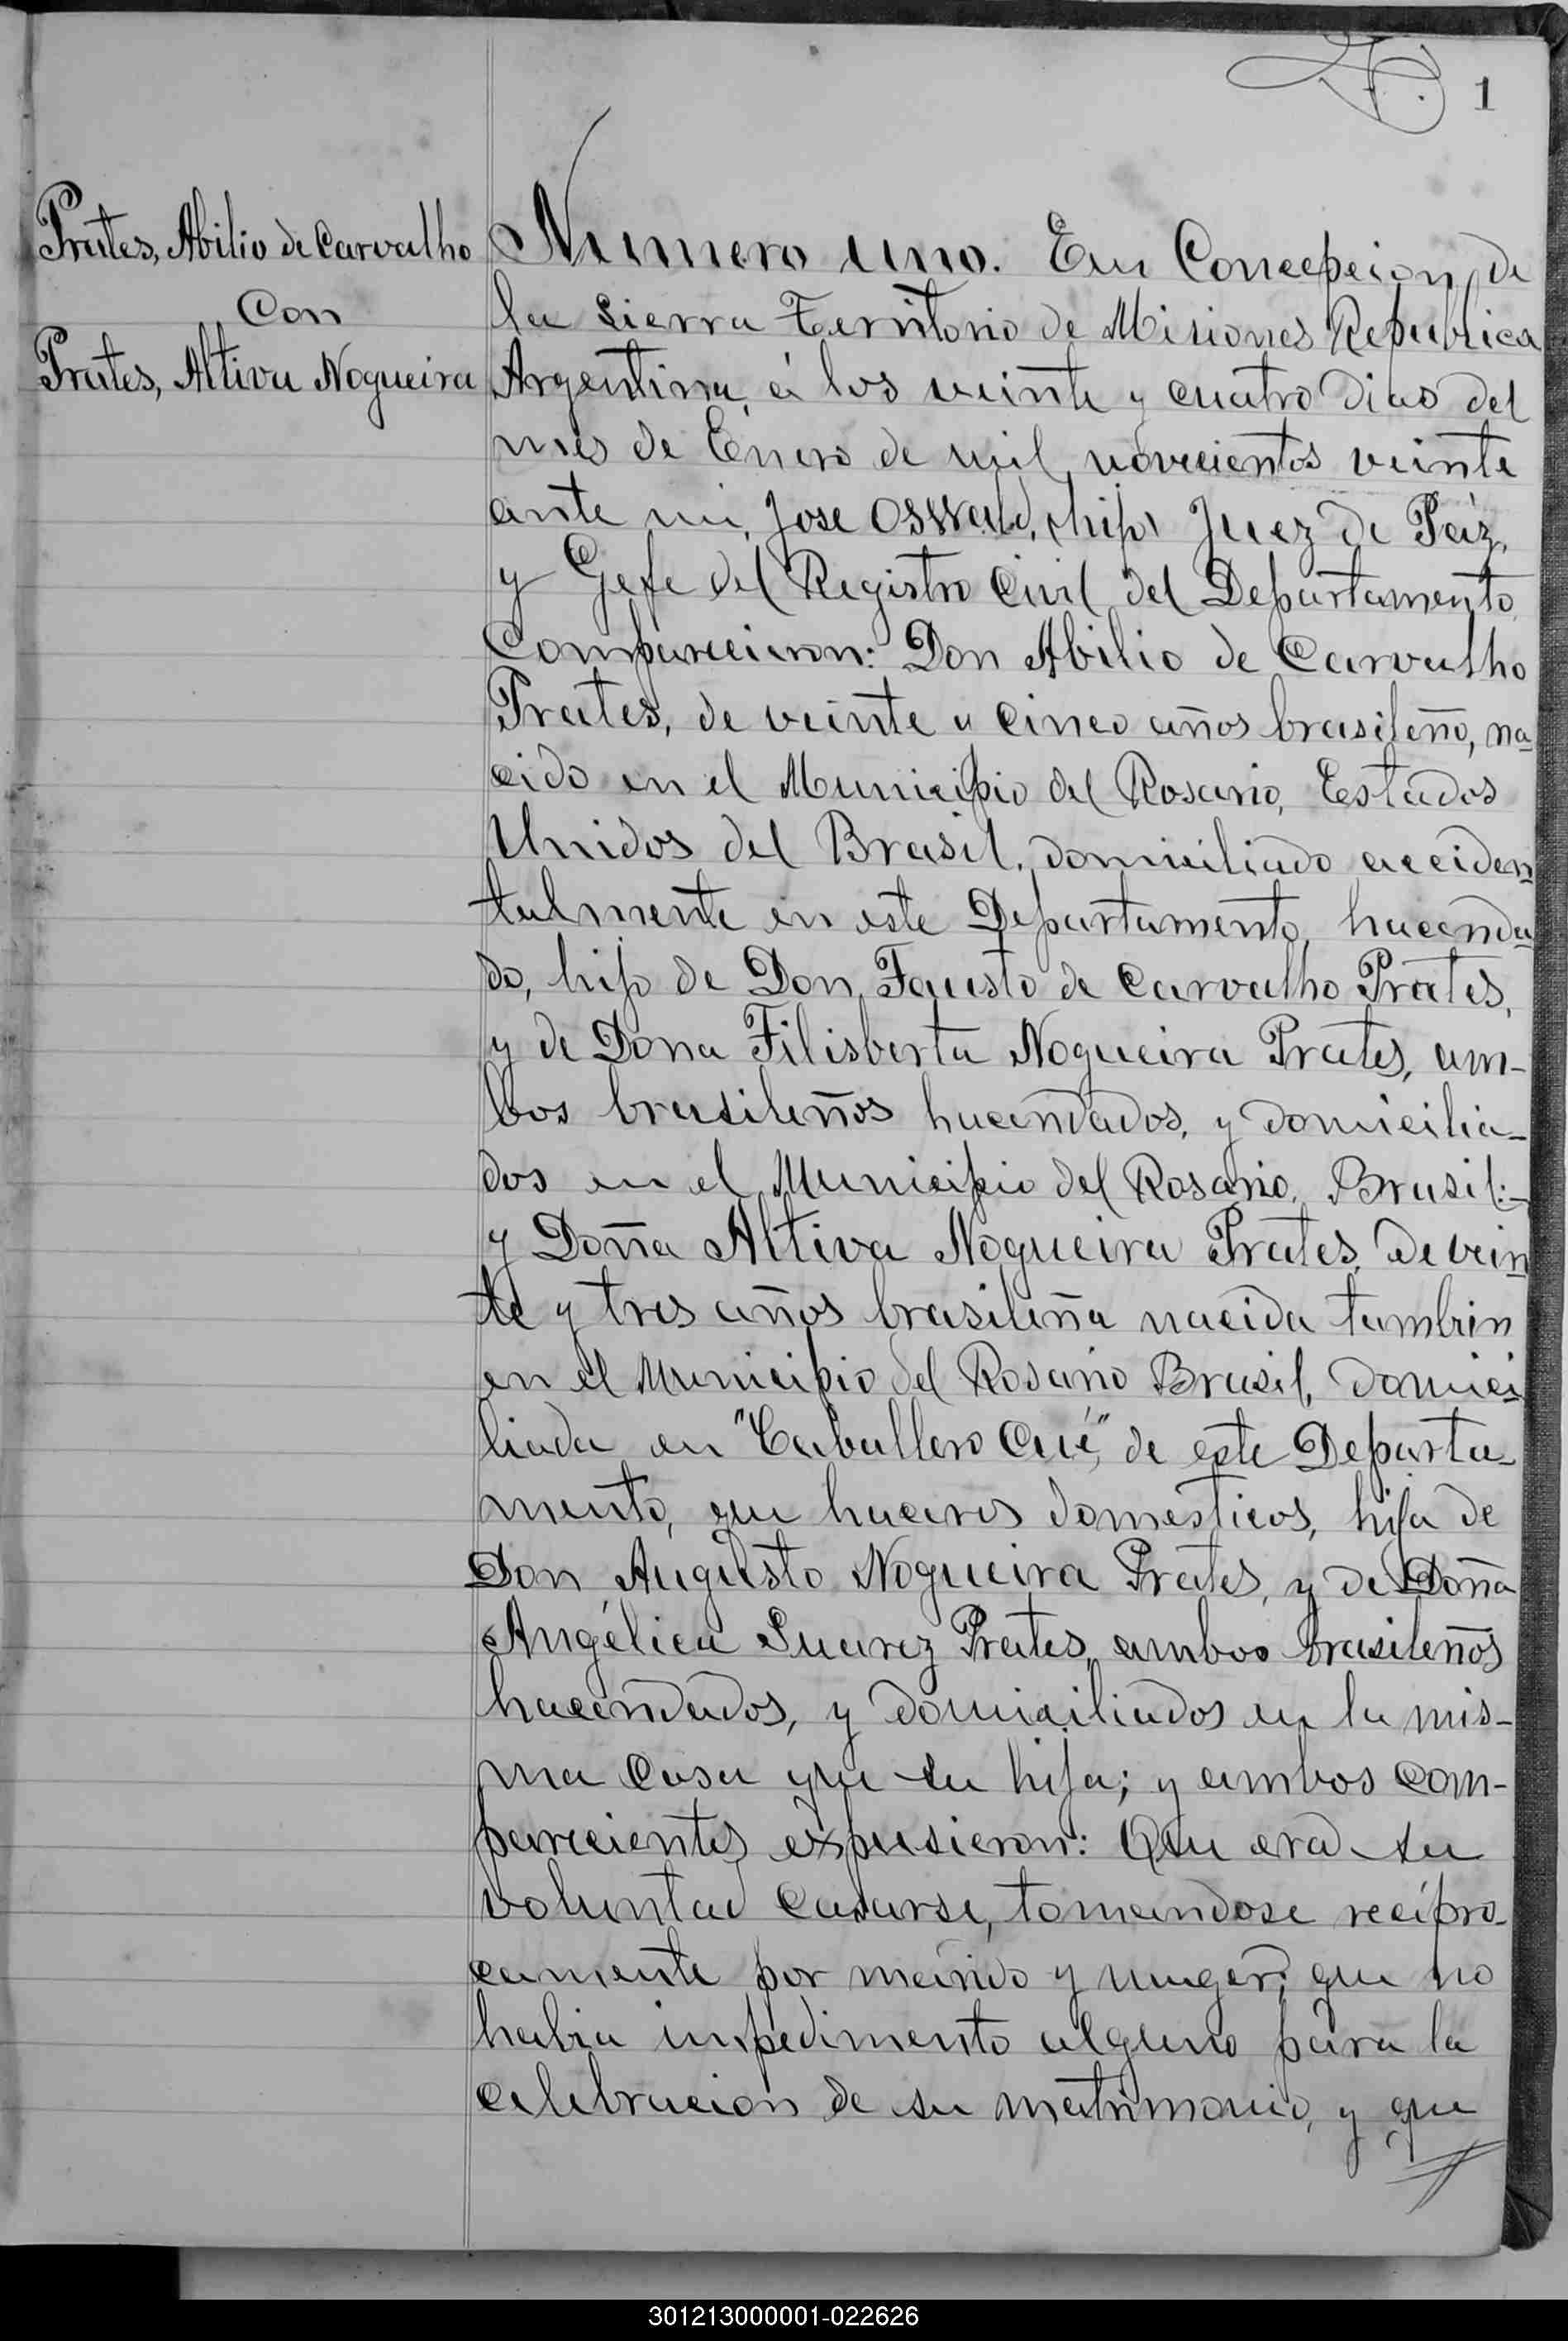 1
Prates, Abilio de Carvalho
Con
Prates, Altiva Nogueira
Numero uno. En Concepcion de
la Sierra Territorio de Misiones Republica
Argentina, á los veinte y cuatro dias del
mes de Enero de mil novecientos veinte
ante mi, Jose Osswald, (hijo) Juez de Páz,
y Gefe del Registro Civil del Departamento
Comparecieron: Don Abilio de Carvalho
Prates, de veinte y cinco años brasileño, na
cido en el Municipio del Rosario, Estados
Unidos del Brasil, domiciliado acciden
talmente en este Departamento, hacenda
do, hijo de Don Fausto de Carvalho Prates,
y de Dona Filisberta Nogueira Prates, am-
bos brasileños hacendados, y domicilia-
dos en el Municipio del Rosario, Brasil:-
y Doña Altiva Nogueira Prates, de vein
te y tres años brasileña nacida tambien
en el Municipio del Rosario Brasil, domici
liada en "Caballero Cué", de este Departa-
mento, que haceres domesticos, hija de
Don Augusto Nogueira Prates, y de Doña
Angélica Suarez Prates, ambos brasileños
hacendados, y domiciliados en la mis-
ma casa que su hija; y ambos com-
parecientes expusieron: Que era su
voluntad casarse, tomandose recípro-
camente por marido y muger; que no
habia impedimento alguno para la
celebracion de su matrimonio, y que
301213000001-022626